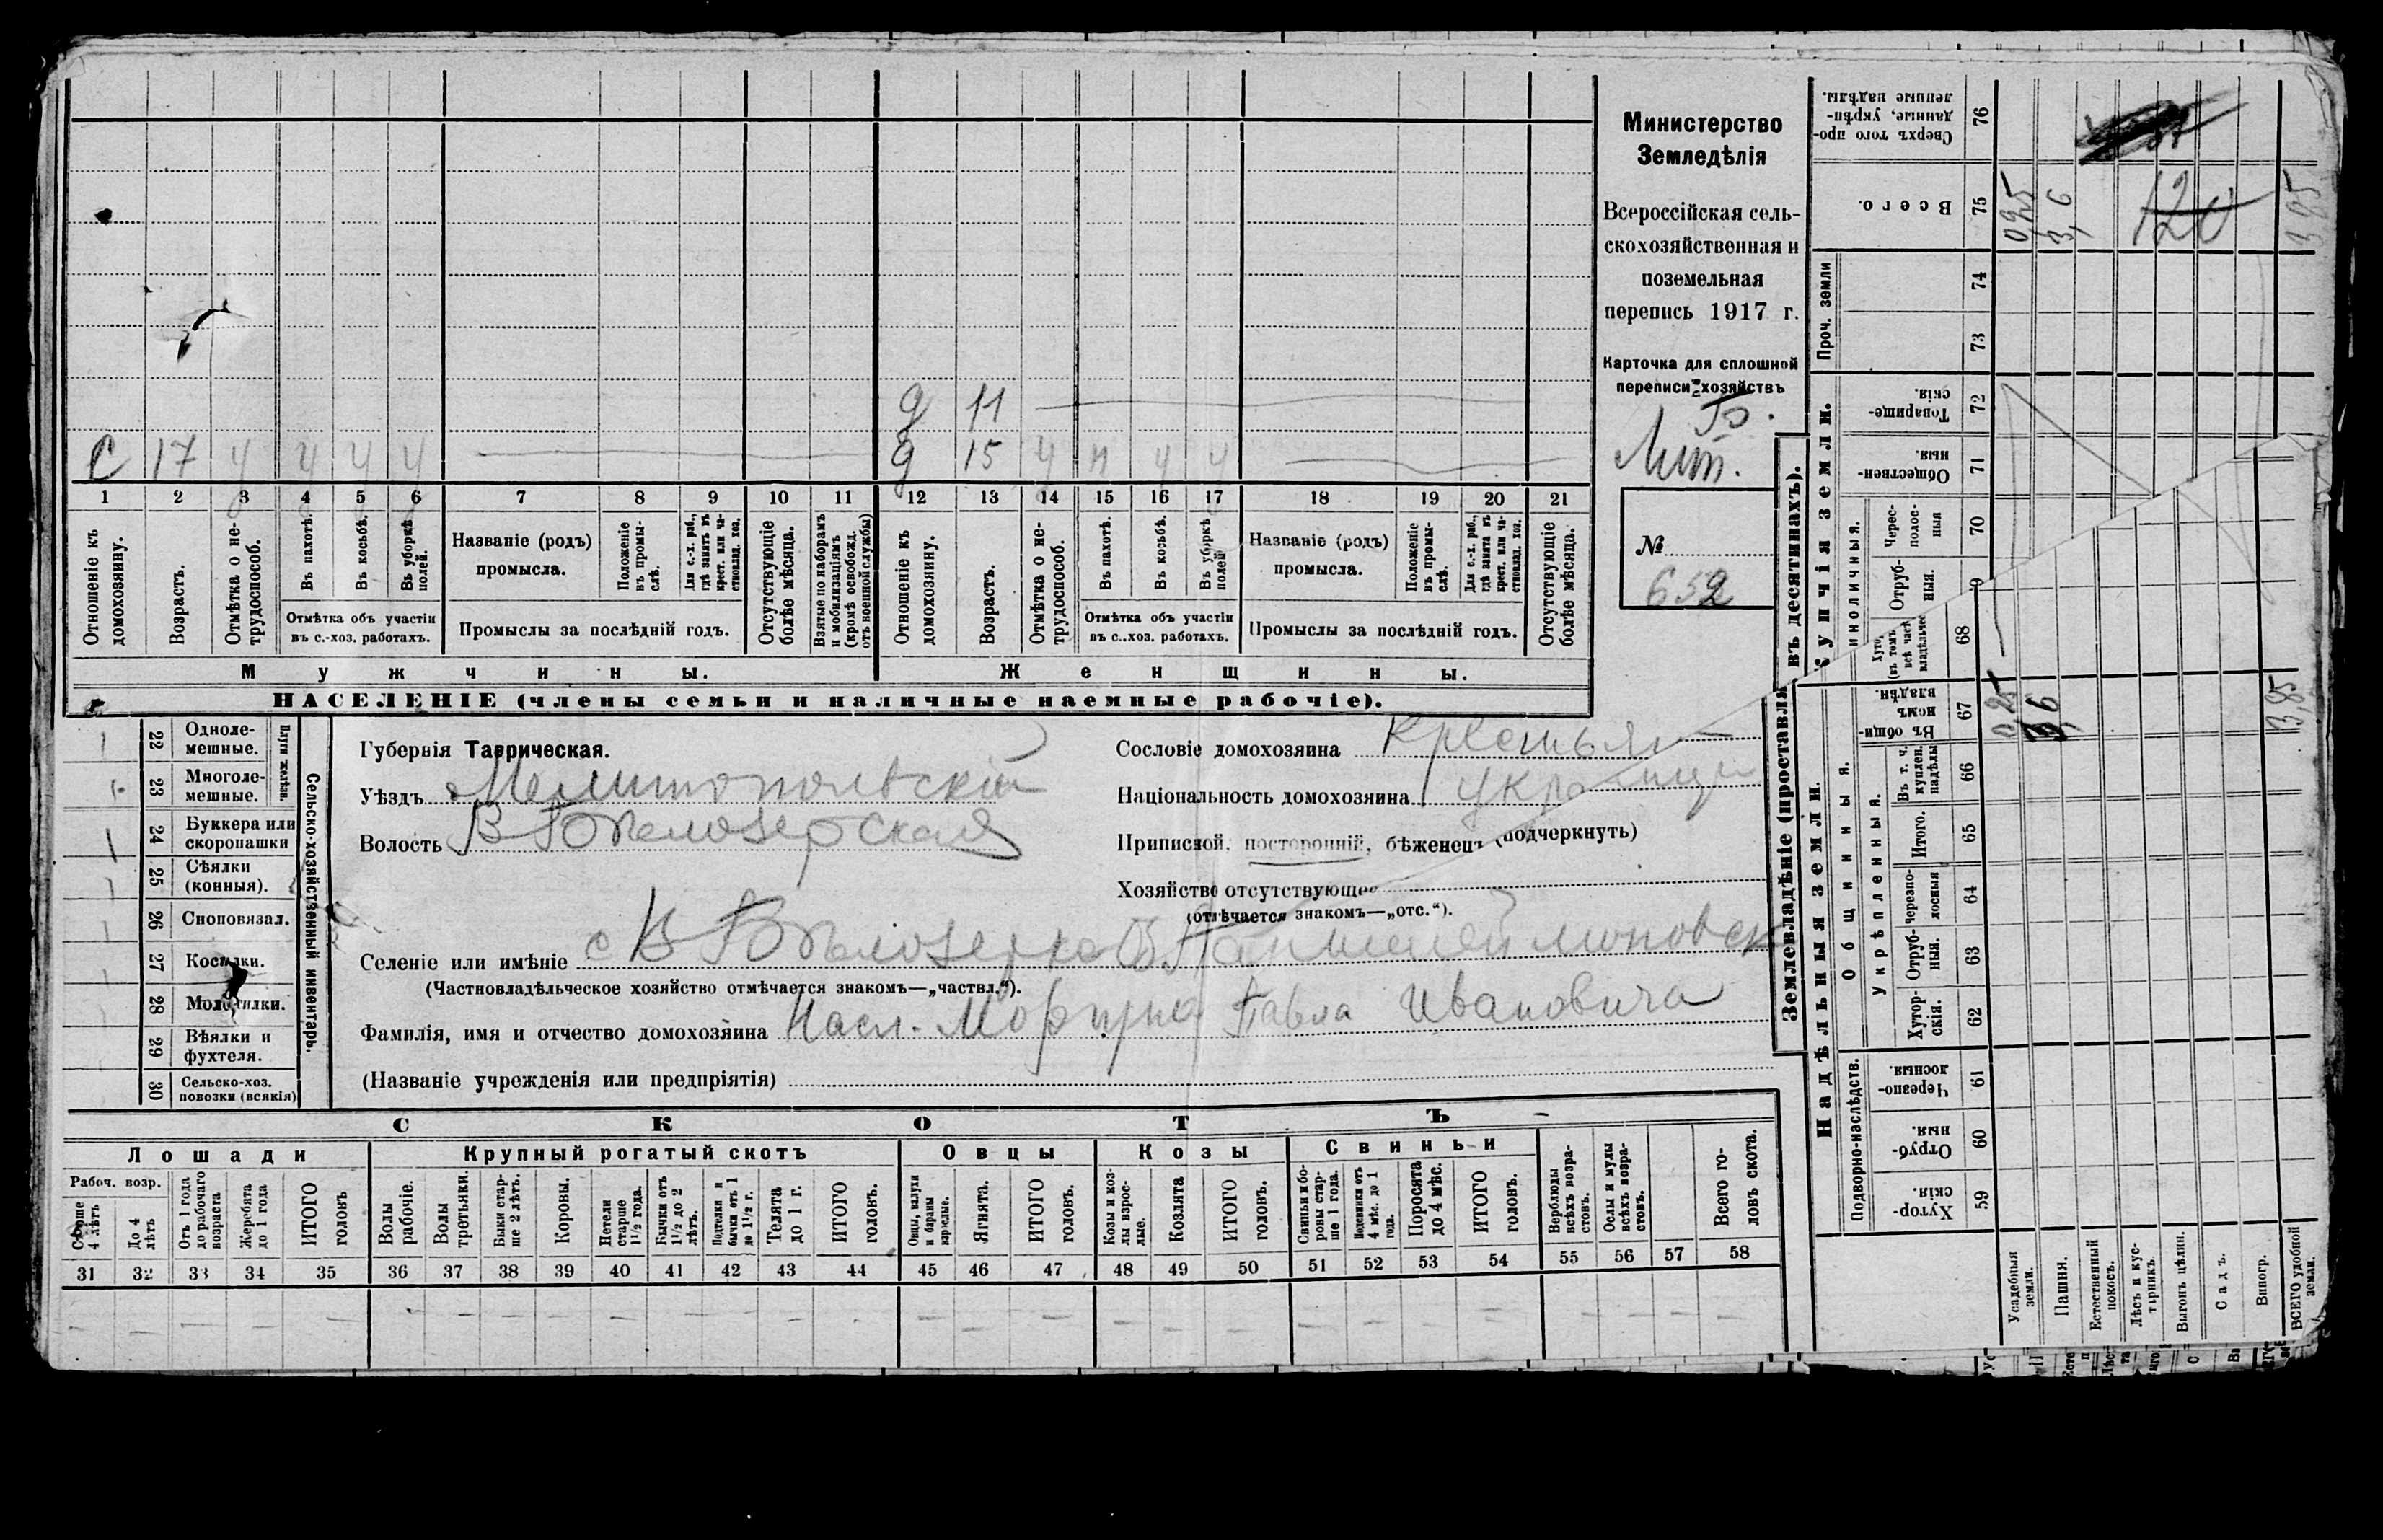 Министерство
Земледѣлія
Всероссійская сель-
скохозяйственная и
поземельная
перепись 1917 г.
Карточка для сплошной
переписи хозяйствъ
Лит. Б.
№
652
д 11
С 17 ч ч ч ч д 15 ч ч ч ч
1 2 3 4 5 6 7 8 9 10 11 12 13 14 15 16 17 18 19 20 21
Отношеніе къ домохозяину.
Возрастъ.
Отмѣтка о не-трудоспособ.
Въ пахотѣ.
Въ косьбѣ.
Въ уборкѣ полей.
Отмѣтка объ участіи
въ с.-хоз. работахъ.
Названіе (родъ)
промысла.
Положеніе въ промы-слѣ.
Для с.-х. раб., гдѣ занятъ въ крест. или ча-стновлад. хоз.
Промыслы за послѣдній годъ.
Отсутствующіе болѣе мѣсяца.
Взятые по наборамъ и мобилизаціямъ (кромѣ освобожд. отъ военной службы)
Отношеніе къ домохозяину.
Возрастъ.
Отмѣтка о не-трудоспособ.
Въ пахотѣ.
Въ косьбѣ.
Въ уборкѣ полей
Отмѣтка объ участіи
въ с.-хоз. работахъ.
Названіе (родъ)
промысла.
Положеніе въ промы-слѣ.
Для с.-х. раб., гдѣ занята въ крест. или ча-стновлад. хоз.
Промыслы за послѣдній годъ.
Отсутствующіе болѣе мѣсяца.
Мужчины. Женщины.
НАСЕЛЕНІЕ (члены семьи и наличные наемные рабочіе).
Сельско-хозяйственный инвентарь.
Плуги желѣзн.
22 Одноле-мешные.
23 Многоле-мешные.
24 Буккера или скоропашки
25 Сѣялки (конныя).
26 Сноповязал.
27 Косилки.
28 Молотилки.
29 Вѣялки и фухтеля.
30 Сельско-хоз. повозки (всякія)
Губернія Таврическая.
Уѣздъ Мелитопольскій
Волость В Бѣлозерская
Селеніе или имѣніе с В Бѣлозерка
(Частновладѣльческое хозяйство отмѣчается знакомъ—„частвл.“).
Фамилія, имя и отчество домохозяина Насл. Павла Ивановича
(Названіе учрежденія или предпріятія)
Сословіе домохозяина Крестьян
Національность домохозяина Украинц
Приписной, посторонній, бѣженецъ (подчеркнуть)
Хозяйство отсутствующее
(отмѣчается знакомъ—„отс.“).
СКОТЪ
Лошади Крупный рогатый скотъ Овцы Козы Свиньи
Рабоч. возр.
Старше 4 лѣтъ
До 4 лѣтъ
Отъ 1 года до рабочаго возраста
Жеребята до 1 года
ИТОГО головъ
Волы рабочіе.
Волы третьяки.
Быки стар-ше 2 лѣтъ.
Коровы.
Нетели старше 1½ года.
Бычки отъ 1½ до 2 лѣтъ.
Подтелки и бычки отъ 1 до 1½ г.
Телята до 1 г.
ИТОГО головъ.
Овцы, валухи и бараны взрослые.
Ягнята.
ИТОГО головъ.
Козы и коз-лы взрос-лые.
Козлята
ИТОГО головъ.
Свиньи и бо-ровы стар-ше 1 года.
Подсвинки отъ 4 мѣс. до 1 года.
Поросята до 4 мѣс.
ИТОГО головъ.
Верблюды всѣхъ возра-стовъ.
Ослы и мулы всѣхъ возра-стовъ.
Всего го-ловъ скота.
31 32 33 34 35 36 37 38 39 40 41 42 43 44 45 46 47 48 49 50 51 52 53 54 55 56 57 58
Землевладѣніе (проставля въ десятинахъ).
Надѣльныя земли.
Купчія земли.
Подворно-наслѣдств.
Общинныя.
Укрѣпленныя.
Хутор-скія. 59
Отруб-ныя. 60
Черезпо-лосныя 61
Хутор-скія. 62
Отруб-ныя. 63
Черезпо-лосныя 64
Итого. 65
Въ т. ч. куплен. надѣлы 66
Въ общин-номъ владѣн. 67 0,25 3,6 3,85
68
Отруб-ныя.
Черес-полос-ныя 70
Обществен-ныя. 71
Товарище-скія. 72
Проч. земли
73
74
Всего. 75 0,25 3,6 120 3,85
Сверхъ того про-данные, укрѣп-ленные надѣлы. 76
Усадебныя земли.
Пашня.
Естественный покосъ.
Лѣсъ и кус-тарникъ.
Выгонъ цѣлин.
Садъ.
Виногр.
ВСЕГО удобной земли.